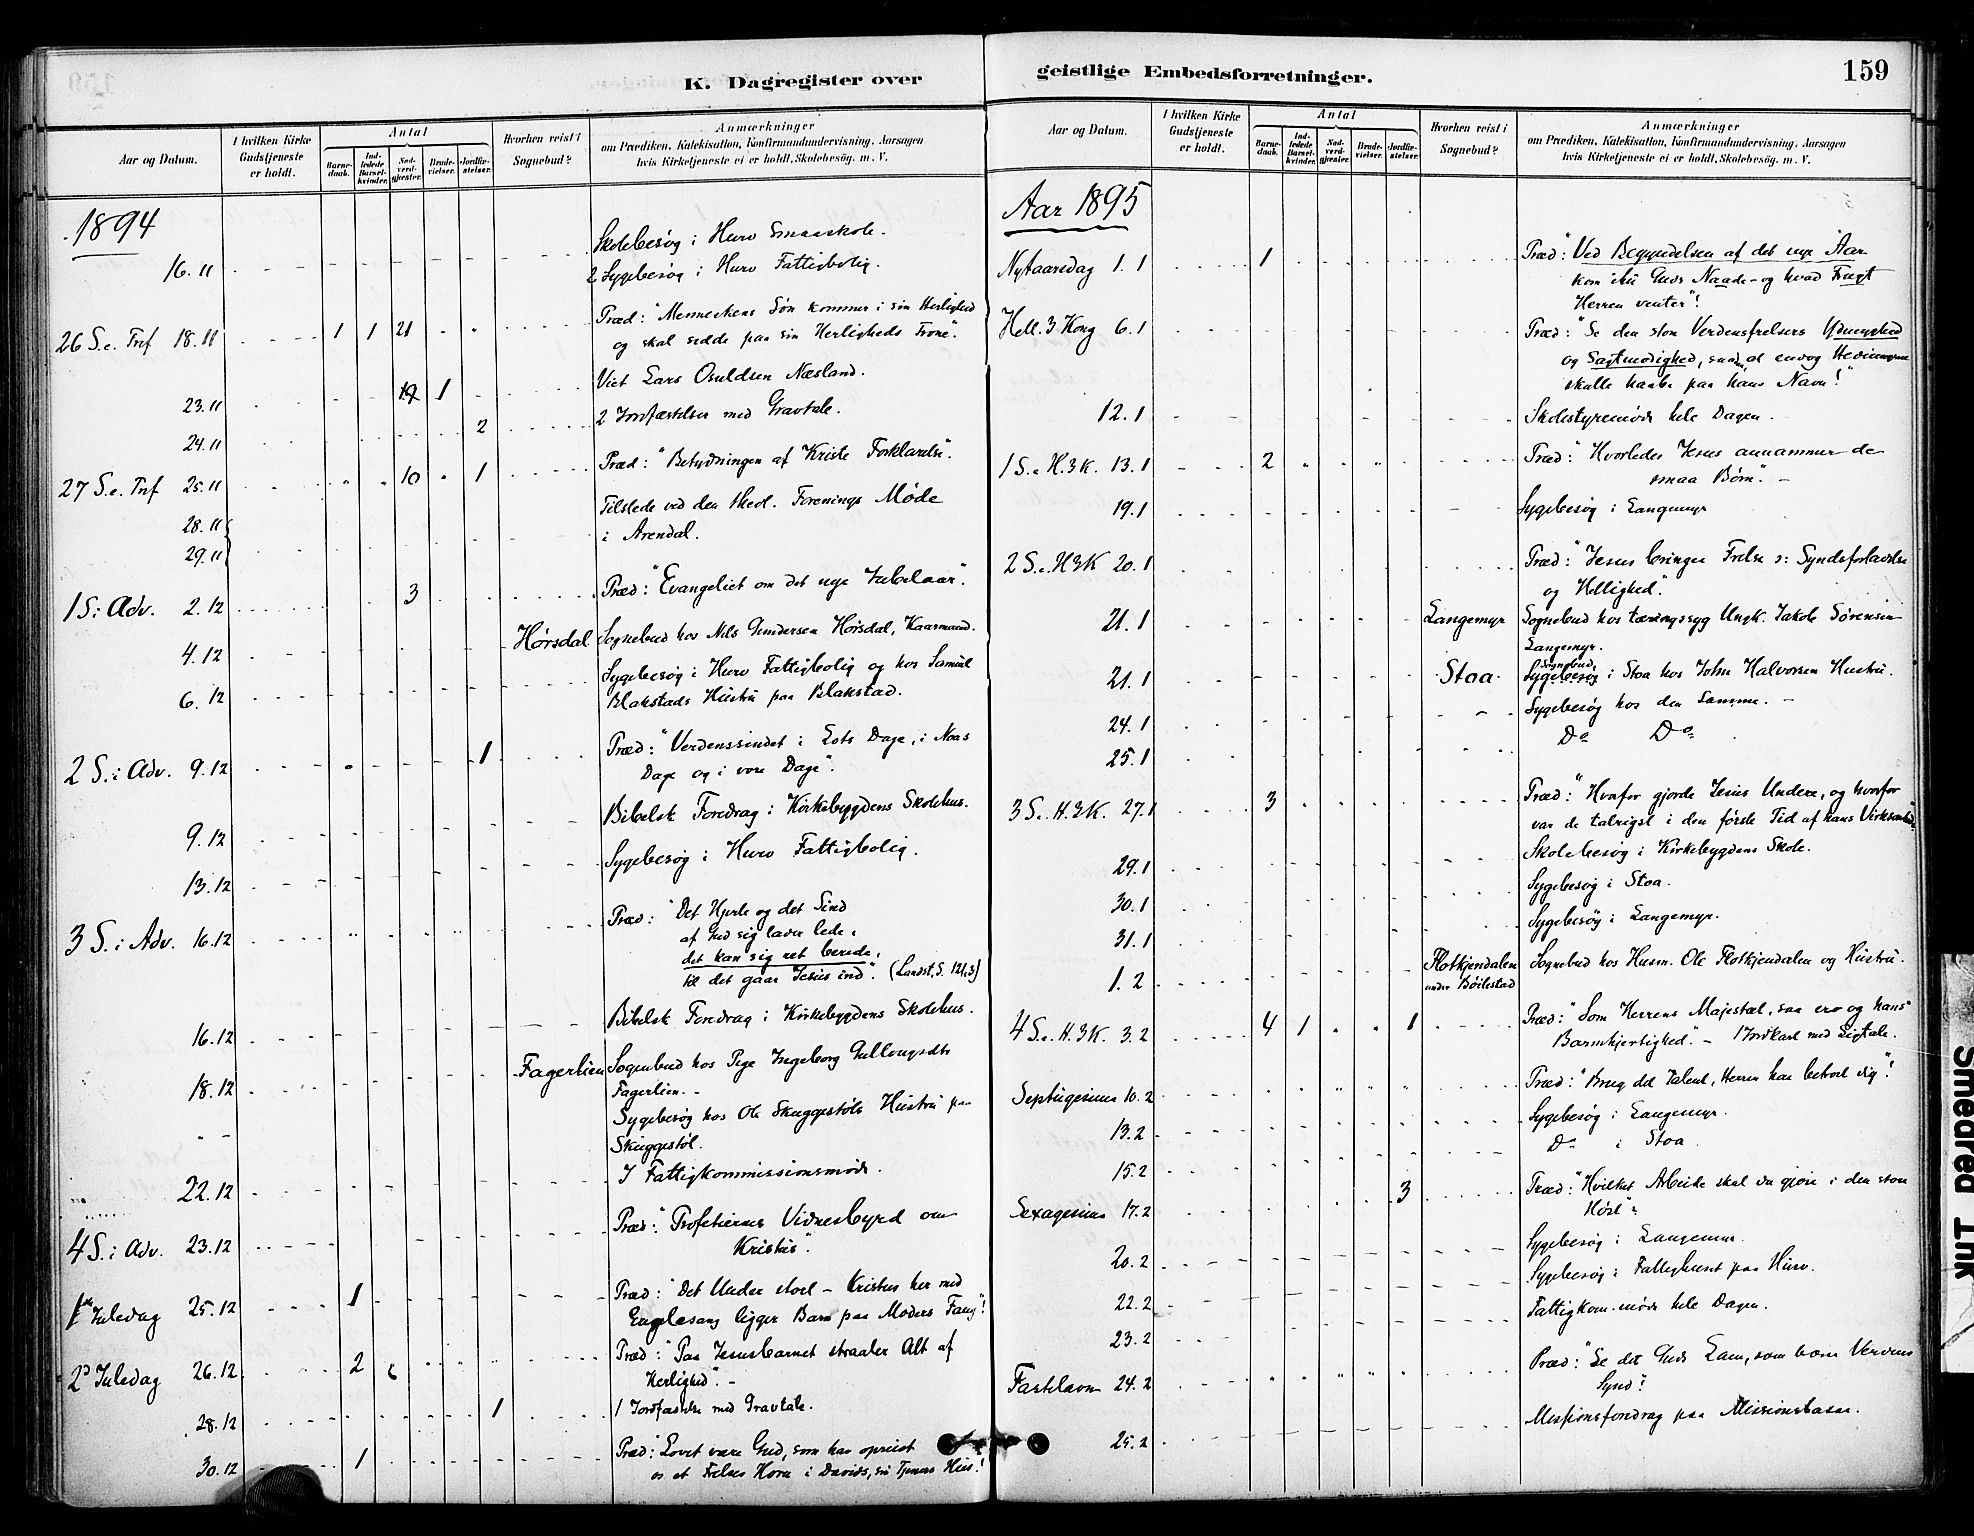 K. Dagregister over
Aar og Datum.
I hvilken Kirke Gudstjeneste er holdt.
Antal
Barnedaab.
Indledede Barselkvinder.
Nadverdgjester.
Brudevielser.
Jordfæstelser.
Hvorhen reist i Sognebud?
Anmærkninger
om Prædiken, Katekisation, Konfirmandundervisning, Aarsagen
hvis Kirketjeneste ei er holdt, Skolebesög, m. V.
1894
Skolebesøg i Huro Smaaskole.
16.11 2 Sygebesøg i Huro Fattigbolig.
26 S. e. Tref 18.11 1 1 21 Præd: "Menneskens Søn kommer i sin Herlighed
og skal sidde paa sin Herligheds Trone".
23.11 1 Viet Lars Osuldsen Næsland.
24.11 2 2 Jordfæstelser med Gravtale.
27 S. e. Tref 25.11 10 1 Præd: "Betydningen af Kristi Forklarelse".
28.11 Tilstede ved den theol. Forenings Møde
29.11 i Arendal.
1 S. i Adv. 2.12 3 Præd: "Evangeliet om det nye Jubelaar".
4.12 Hørsdal Sognebud hos Nils Gundersen Hørsdal, Kaarmand.
6.12 Sygebesøg i Huro Fattigbolig og hos Samuel
Blakstads Hustru paa Blakstad.
2 S. i Adv. 9.12 1 Præd: "Verdenssindet i Lots Dage, i Noas
Dage og i vore Dage".
9.12 Bibelsk Foredrag i Kirkebygdens Skolehus.
13.12 Sygebesøg i Huro Fattigbolig.
3 S. i Adv. 16.12 Præd: "Det Hjerte og det Sind
af Gud sig laver lede,
det kan sig ret berede,
til det gaar Jesus ind". (Landst. S. 121,3)
16.12 Bibelsk Foredrag i Kirkebygdens Skolehus.
18.12 Fagerlien Sognebud hos Pige Ingeborg
Fagerlien.
" - Sygebesøg hos Ole Skuggestøls Hustru paa
Skuggestøl.
22.12 I Fattigkommissionsmøde.
4 S. i Adv. 23.12 Præd: "Profetiernes Vidnesbyrd om
Kristus".
1ste Juledag 25.12 1 Præd: "Det Under stort - Kristus her med
Englesang ligger Barn paa Moders Fang"!
2d Juledag 26.12 2 Præd: "Paa Jesusbarnet straaler Alt af
Herlighed". -
28.12 1 1 Jordfæstelse med Gravtale.
30.12 1 Præd: "Lovet være Gud, som har opreist
os et Frelses Horn i Davids, sin Tjeners Hus"!
geistlige Embedsforretninger.
159
Aar og Datum.
I hvilken Kirke Gudstjeneste er holdt.
Antal
Barnedaab.
Indledede Barselkvinder.
Nadverdgjester.
Brudevielser.
Jordfæstelser.
Hvorhen reist i Sognebud?
Anmærkninger
om Prædiken, Katekisation, Konfirmandundervisning, Aarsagen
hvis Kirketjeneste ei er holdt, Skolebesög, m. V.
Aar 1895
Nytaarsdag 1.1 1 Præd: "Ved Begyndelsen af det nye Aar
kom ihu Guds Naade - og hvad Frugt
Herren venter"!
Hell. 3 Kong 6.1 Præd: "Se den store Verdensfrelsers Ydmyghed
og Sagtmodighed, saa at endog Hedningerne
skulle haabe paa hans Navn!"
12.1 Skolestyremøde hele Dagen.
1 S. e. H.3K. 13.1 2 Præd: "Hvorledes Jesus annammer de
smaa Børn". -
19.1 Sygebesøg i Langemyr
2 S. e. H3K 20.1 Præd: "Jesus bringer Frelse ɔ: Syndsforladelse
og Hellighed".
21.1 Langemyr Sognebud hos tæringssyg Ungk. Jakob Sørensen
Langemyr.
21.1 Stoa. Sognebud, Sygebesøg i Stoa hos John Halvorsen Hustru.
24.1 Sygebesøg hos den Samme. -
25.1 Do Do
3 S. e. H.3K. 27.1 3 Præd: "Hvorfor gjorde Jesus Undere, og hvorfor
var de talrigst i den første Tid af hans Virksomhed"
29.1 Skolebesøg i Kirkebygdens Skole.
30.1 Sygebesøg i Stoa.
31.1 Sygebesøg i Langemyr.
1.2 Flotkjendalen under Bøilestad Sognebud hos Husm. Ole Flotkjendalen og Hustru.
4 S. e. H.3K. 3.2 4 1 1 Præd: "Som Herrens Majestæt, saa er og hans
Barmhjertighed". - 1 Jordkast med Ligtale.
Septuagesima 10.2 Præd: "Brug det Talent, Herren har betroet dig"!
13.2 Sygebesøg i Langemyr.
15.2 Do i Stoa
Sexagesima 17.2 3 Præd: "Hvilket Arbeide skal du gjøre i den store
Høst"?
20.2 Sygebesøg i Langemyr.
22.2 Sygebesøg i Fattighuset paa Huro.
23.2 Fattigkom. møde hele Dagen.
Fastelavn 24.2 Præd: "Se det Guds Lam, som bærer Verdens
Synd"!
25.2 Missionsforedrag paa Missionsbasar.
Smedrød Ink